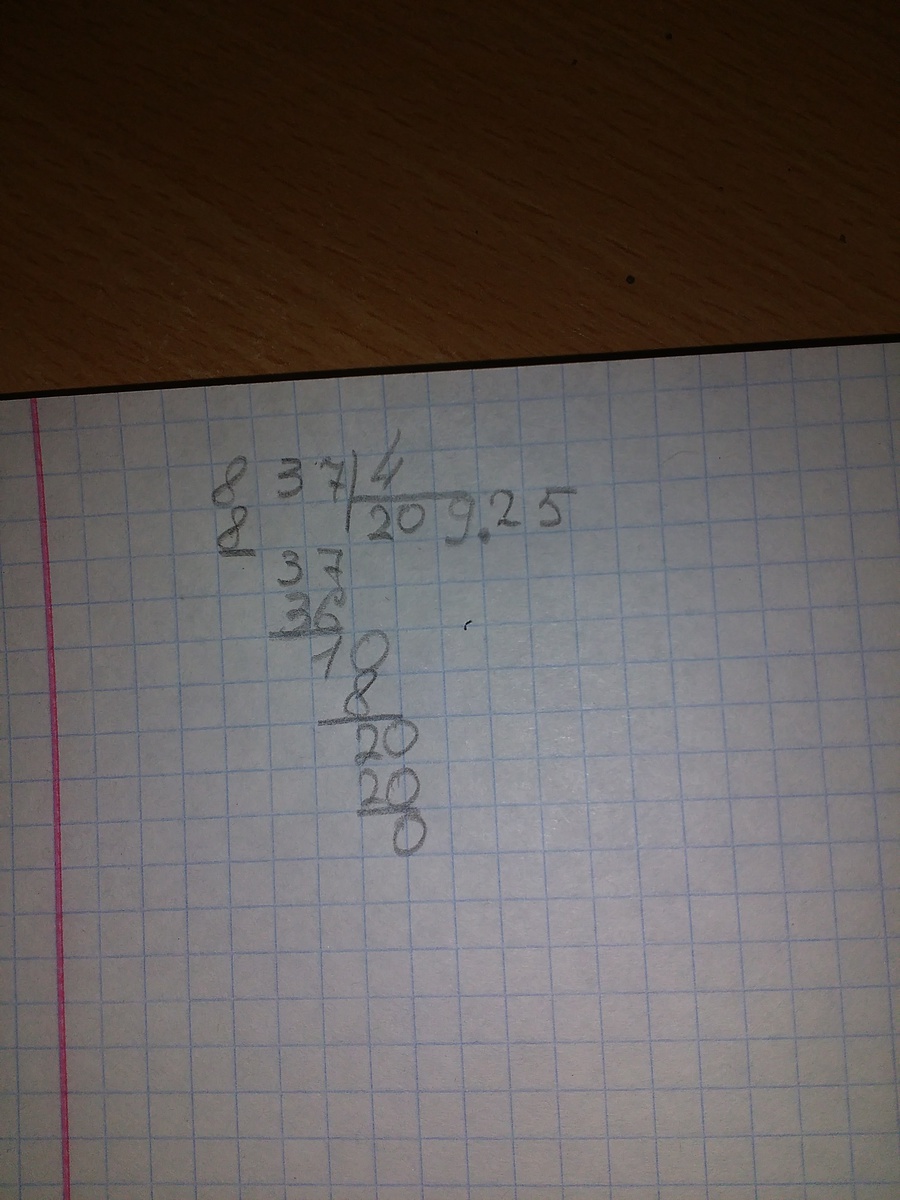 8 37 4
8 209.25
37
36
10
8
20
20
0